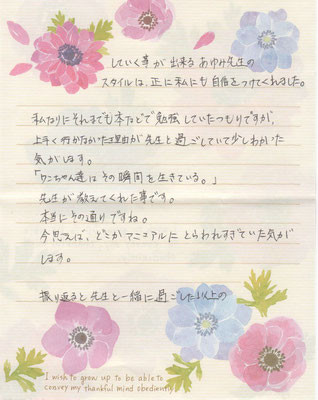 していく事が出来るあゆみ先生の
スタイルは、正に私にも自信をつけてくれました。
私なりにそれまでも本などで勉強していたつもりですが、
上手く行かなかった理由が先生と過ごしていて少しわかった
気がします。
「ワンちゃん達はその瞬間を生きている。」
先生が教えてくれた事です。
本当にその通りですね。
今思えば、どこかマニュアルにとらわれすぎていた気が
します。
振り返ると先生と一緒に過ごした
I wish to grow up to be able to
convey my thankful mind obediently